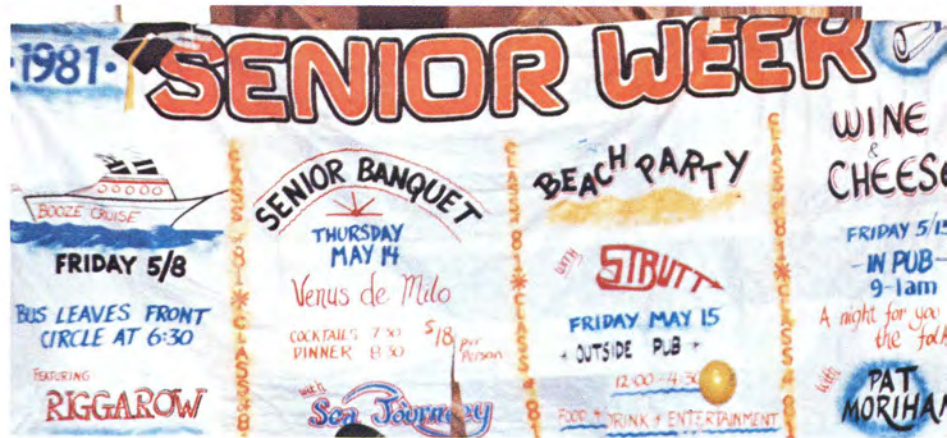 1981
SENIOR WEEK
BOOZE CRUISE
FRIDAY 5/8
BUS LEAVES FRONT
CIRCLE AT 6:30
FEATURING
RIGGAROW
CLASS 81 * CLASS 81
SENIOR BANQUET
THURSDAY
MAY 14
Venus de Milo
COCKTAILS 7:30
DINNER 8:30
$18 per
Person
with
Sea Journey
CLASS 81 * CLASS 81
BEACH PARTY
with
STRUTT
FRIDAY MAY 15
OUTSIDE PUB
12:00-4:30
FOOD + DRINK + ENTERTAINMENT
CLASS 81 * CLASS 81
WINE
&
CHEESE
FRIDAY 5/15
- IN PUB -
9-1am
A night for you
the
with
PAT